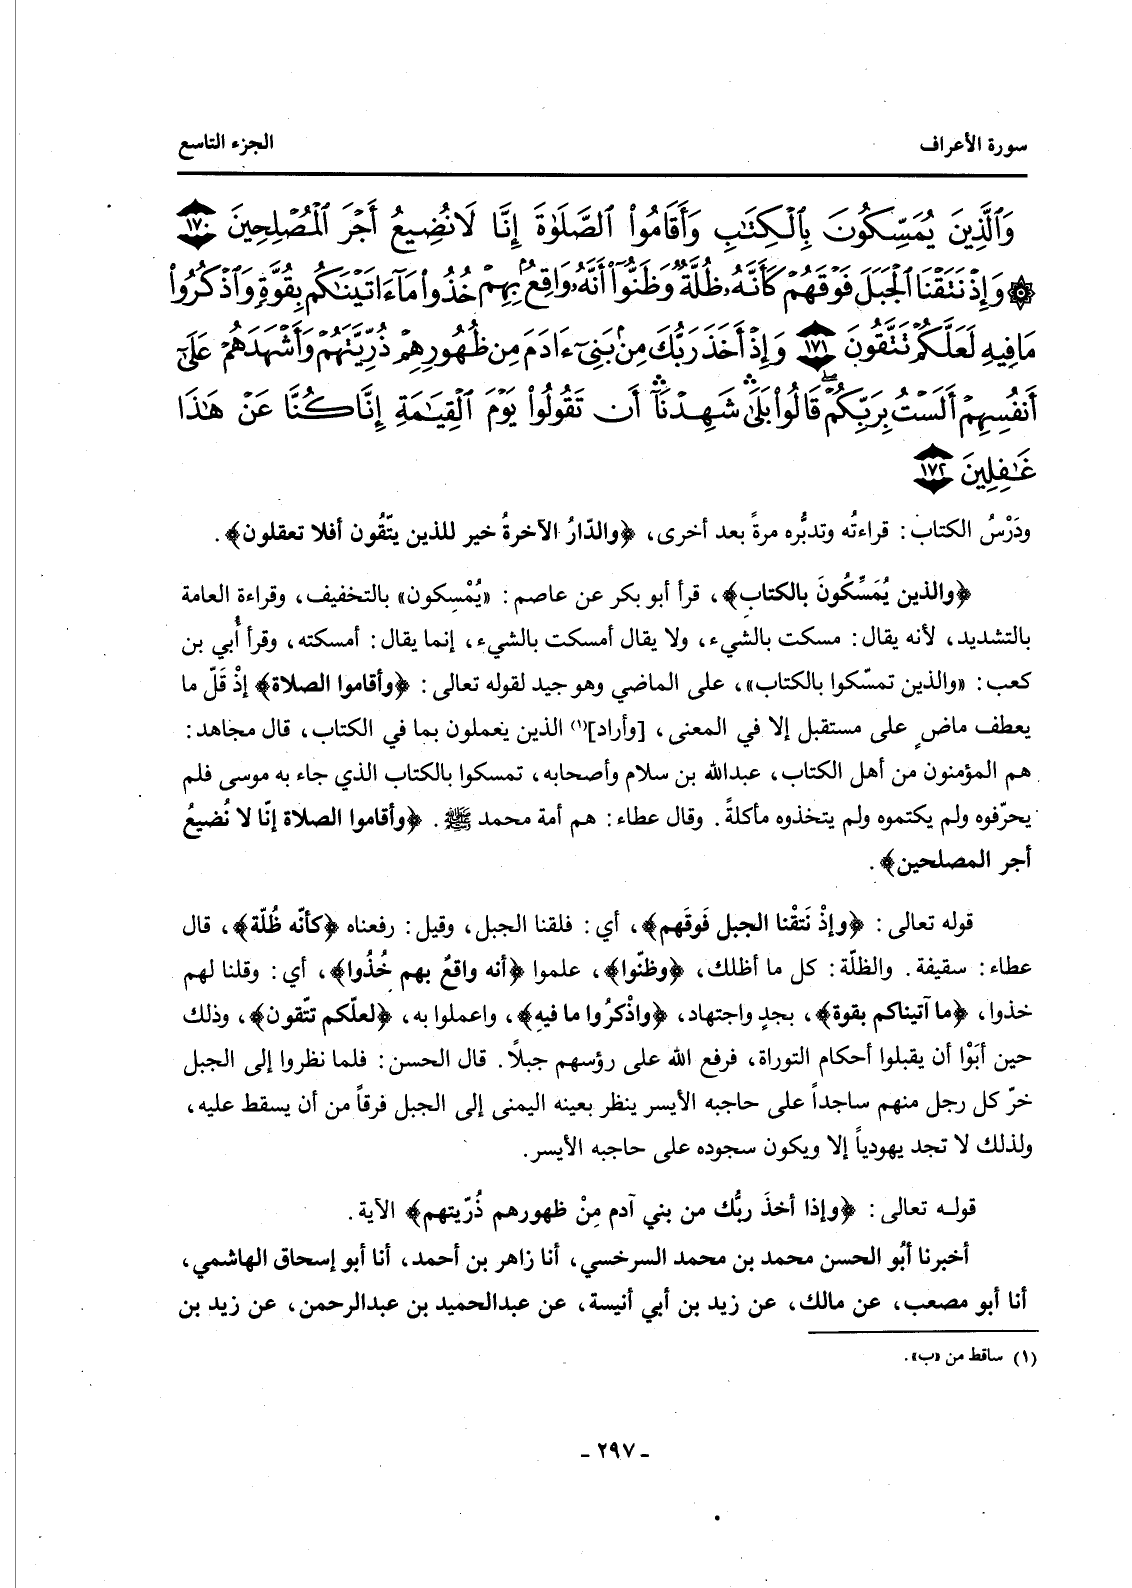 سورة الأعراف
الجزء التاسع
وَٱلَّذِينَ يُمَسِّكُونَ بِٱلْكِتَٰبِ وَأَقَامُوا۟ ٱلصَّلَوٰةَ إِنَّا لَا نُضِيعُ أَجْرَ ٱلْمُصْلِحِينَ ١٧٠
۞ وَإِذْ نَتَقْنَا ٱلْجَبَلَ فَوْقَهُمْ كَأَنَّهُۥ ظُلَّةٌ وَظَنُّوٓا۟ أَنَّهُۥ وَاقِعٌۢ بِهِمْ خُذُوا۟ مَآ ءَاتَيْنَٰكُم بِقُوَّةٍ وَٱذْكُرُوا۟
مَا فِيهِ لَعَلَّكُمْ تَتَّقُونَ ١٧١ وَإِذْ أَخَذَ رَبُّكَ مِنۢ بَنِىٓ ءَادَمَ مِن ظُهُورِهِمْ ذُرِّيَّتَهُمْ وَأَشْهَدَهُمْ عَلَىٰٓ
أَنفُسِهِمْ أَلَسْتُ بِرَبِّكُمْ ۖ قَالُوا۟ بَلَىٰ ۛ شَهِدْنَآ ۛ أَن تَقُولُوا۟ يَوْمَ ٱلْقِيَٰمَةِ إِنَّا كُنَّا عَنْ هَٰذَا
غَٰفِلِينَ ١٧٢
ودَرْسُ الكتاب: قراءتُه وتدبُّره مرةً بعد أخرى، ﴿والدّارُ الآخرةُ خير للذين يتّقُون أفلا تعقلون﴾.
﴿والذين يُمَسِّكُونَ بالكتابِ﴾، قرأ أبو بكر عن عاصم: «يُمْسِكون» بالتخفيف، وقراءة العامة
بالتشديد، لأنه يقال: مسكت بالشيء، ولا يقال أمسكت بالشيء، إنما يقال: أمسكته، وقرأ أُبي بن
كعب: «والذين تمسّكوا بالكتاب»، على الماضي وهو جيد لقوله تعالى: ﴿وأقاموا الصلاة﴾ إذْ قَلّ ما
يعطف ماضٍ على مستقبل إلا في المعنى، [وأراد](١) الذين يعملون بما في الكتاب، قال مجاهد:
هم المؤمنون من أهل الكتاب، عبدالله بن سلام وأصحابه، تمسكوا بالكتاب الذي جاء به موسى فلم
يحرّفوه ولم يكتموه ولم يتخذوه مأكلةً. وقال عطاء: هم أمة محمد ﷺ. ﴿وأقاموا الصلاة إنّا لا نُضيعُ
أجر المصلحين﴾.
قوله تعالى: ﴿وإذْ نَتقْنا الجبل فَوقَهم﴾، أي: فلقنا الجبل، وقيل: رفعناه ﴿كأنّه ظُلّة﴾، قال
عطاء: سقيفة. والظلّة: كل ما أظلك، ﴿وظنّوا﴾، علموا ﴿أنه واقعٌ بهم خُذُوا﴾، أي: وقلنا لهم
خذوا، ﴿ما آتيناكم بقوة﴾، بجدٍ واجتهاد، ﴿واذْكرُوا ما فيهِ﴾، واعملوا به، ﴿لعلّكم تتّقون﴾، وذلك
حين أبَوْا أن يقبلوا أحكام التوراة، فرفع الله على رؤسهم جبلاً. قال الحسن: فلما نظروا إلى الجبل
خرّ كل رجل منهم ساجداً على حاجبه الأيسر ينظر بعينه اليمنى إلى الجبل فرقاً من أن يسقط عليه،
ولذلك لا تجد يهودياً إلا ويكون سجوده على حاجبه الأيسر.
قوله تعالى: ﴿وإذا أخذَ ربُّك من بني آدم مِنْ ظهورهم ذُرّيتهم﴾ الآية.
أخبرنا أبُو الحسن محمد بن محمد السرخسي، أنا زاهر بن أحمد، أنا أبو إسحاق الهاشمي،
أنا أبو مصعب، عن مالك، عن زيد بن أبي أنيسة، عن عبدالحميد بن عبدالرحمن، عن زيد بن
(١) ساقط من «ب».
- ٢٩٧ -